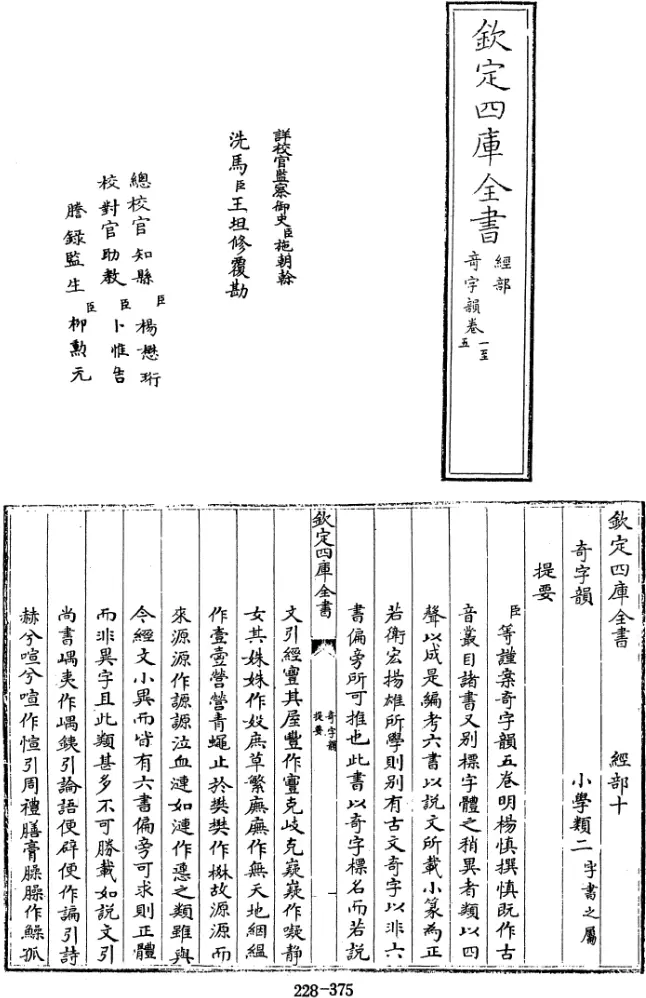 欽定四庫全書
經部
奇字韻卷一至五
詳校官監察御史臣施朝幹
洗馬臣王坦修覆勘
總校官知縣臣楊懋珩
校對官助教臣卜惟吉
謄錄監生臣柳勳元
欽定四庫全書 經部十
奇字韻 小學類二字書之屬
提要
臣等謹案奇字韻五卷明楊慎撰慎既作古
音叢目諸書又別標字體之稍異者類以四
聲以成是編考六書以說文所載小篆為正
若衛宏揚雄所學則別有古文奇字以非六
書偏旁所可推也此書以奇字標名而若說
欽定四庫全書
奇字韻
提要
一
文引經豐其屋豐作寷克岐克嶷嶷作㘈靜
女其姝姝作㚥庶草繁廡廡作無天地絪縕
作壹壺營營青蠅止於樊樊作棥故源源而
來源源作謜謜泣血漣如漣作㦁之類雖與
今經文小異而皆有六書偏旁可求則正體
而非異字且此類甚多不可勝載如說文引
尚書嵎夷作嵎銕引論語便辟便作諞引詩
赫兮喧兮喧作愃引周禮膳膏臊臊作鱢狐
228-375